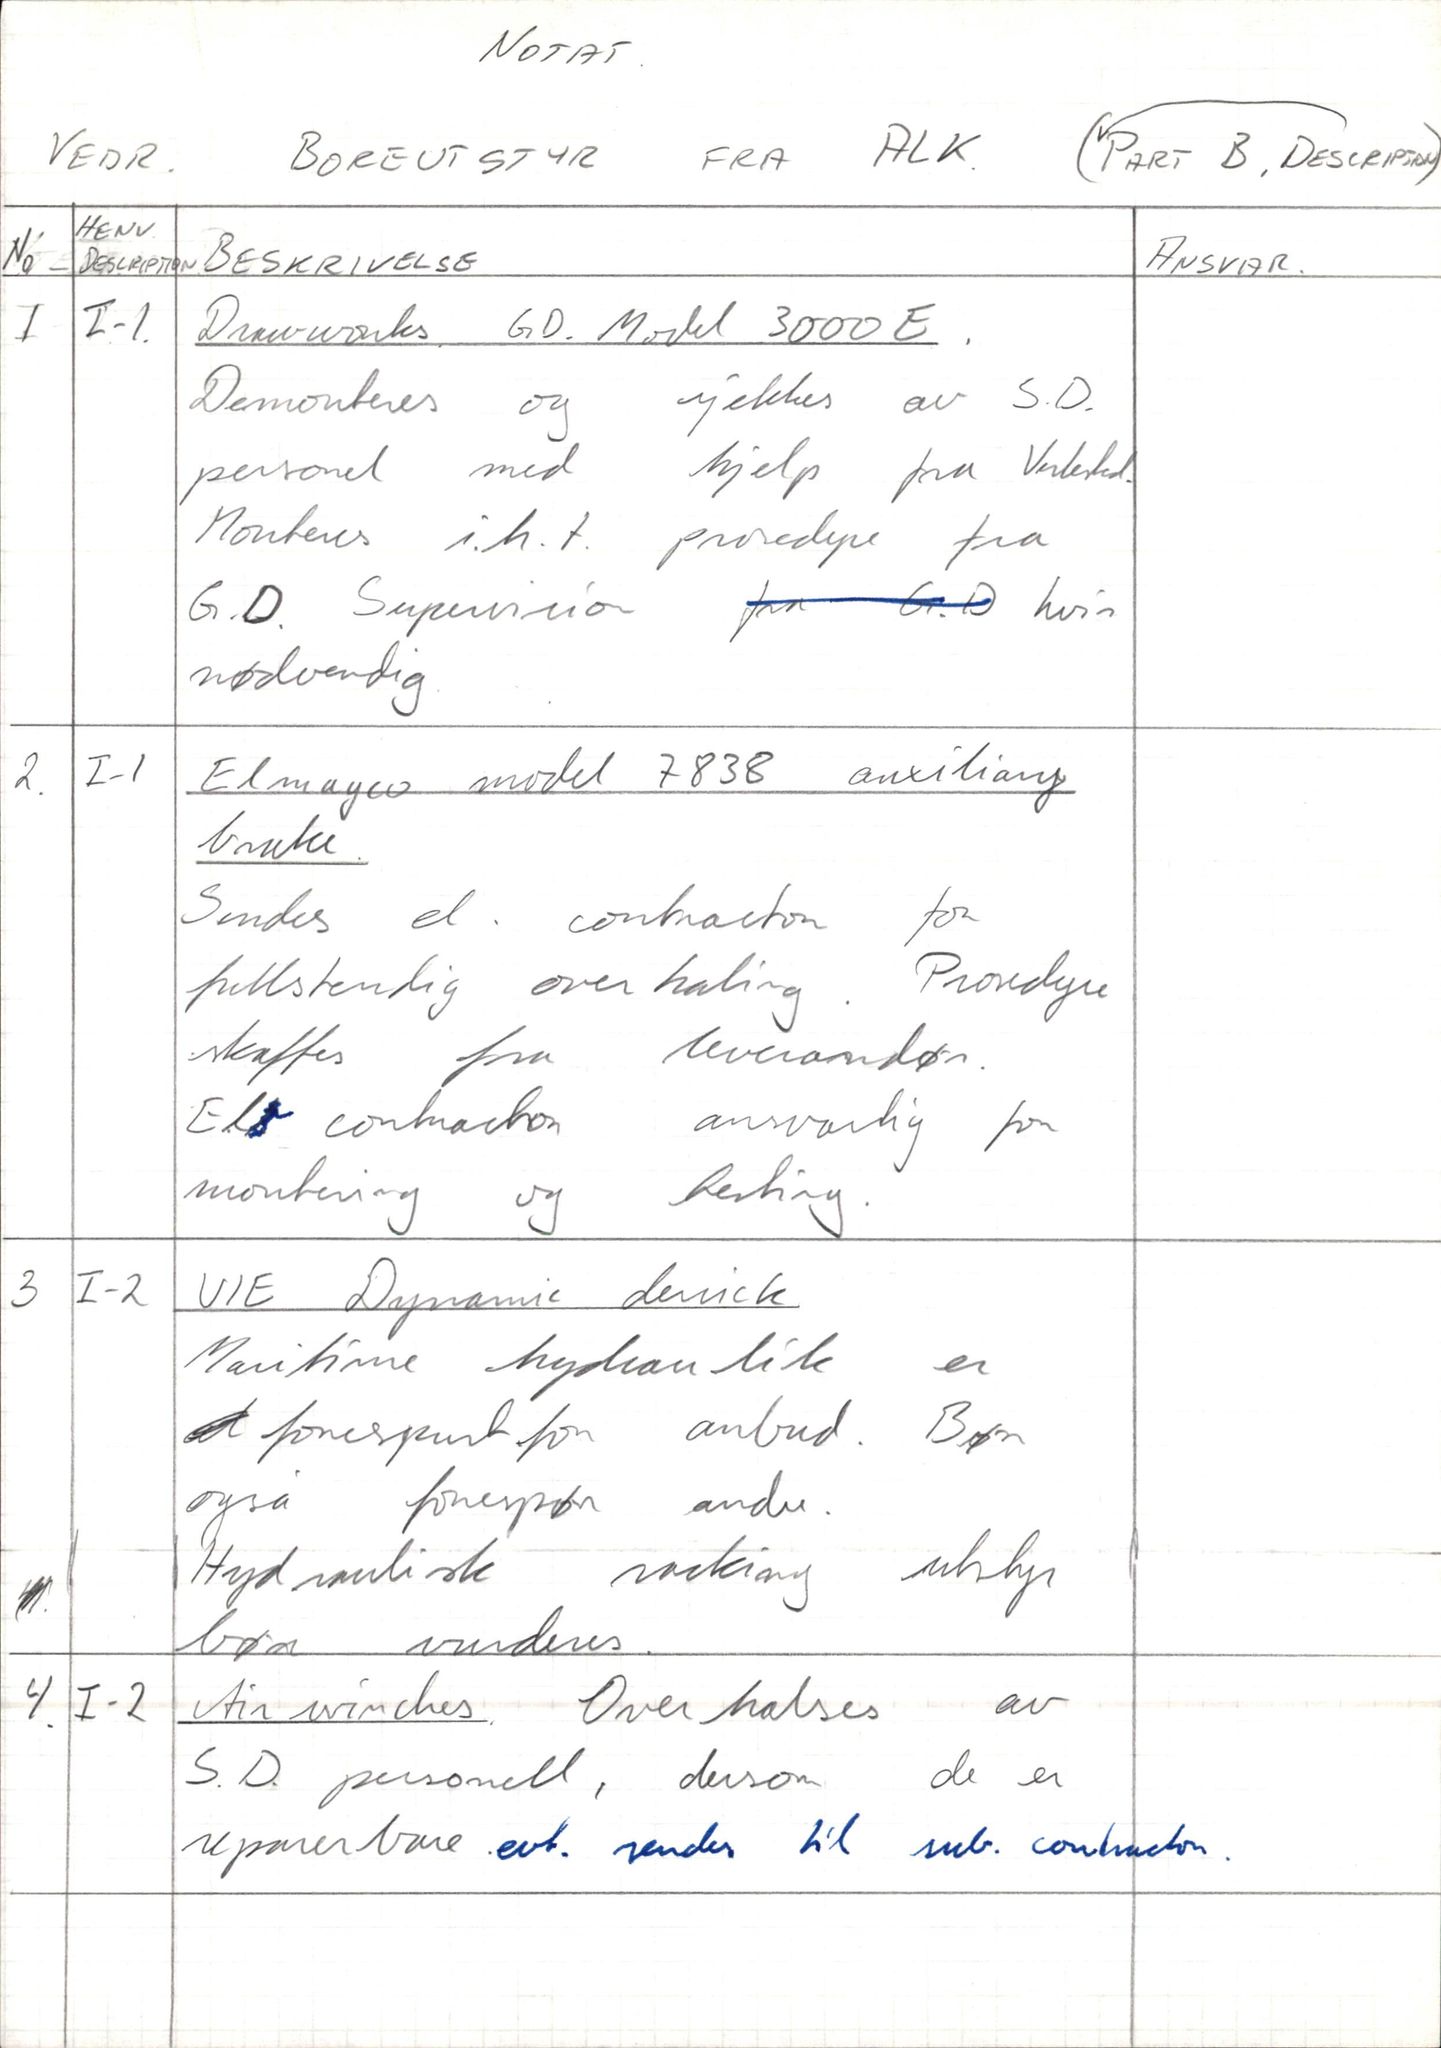 NOTAT.
VEDR. BOREUTSTYR FRA ALK. (PART B, DESCRIPTION)
No HENV. DESCRIPTION BESKRIVELSE ANSVAR.
I I-1. Drawworks G.D. Model 3000 E.
Demonteres og sjekkes av S.D.
personel med hjelp fra Verksted.
Monteres i.h.t. prosedyre fra
G.D. Supervision fra G.D hvis
nødvendig.
2. I-1 Elmagco model 7838 auxiliary
brake.
Sendes el. contractor for
fullstendig overhaling. Prosedyre
skaffes fra leverandør.
El contractor ansvarlig for
montering og testing.
3 I-2 VIE Dynamic derrick
Maritime hydraulik er
forespurt for anbud. Bør
også forespør andre.
Hydraulisk racking utstyr
bør vurderes.
4. I-2 Air winches. Overhalses av
S.D. personell, dersom de er
reparerbare evt. sendes til sub. contractor.